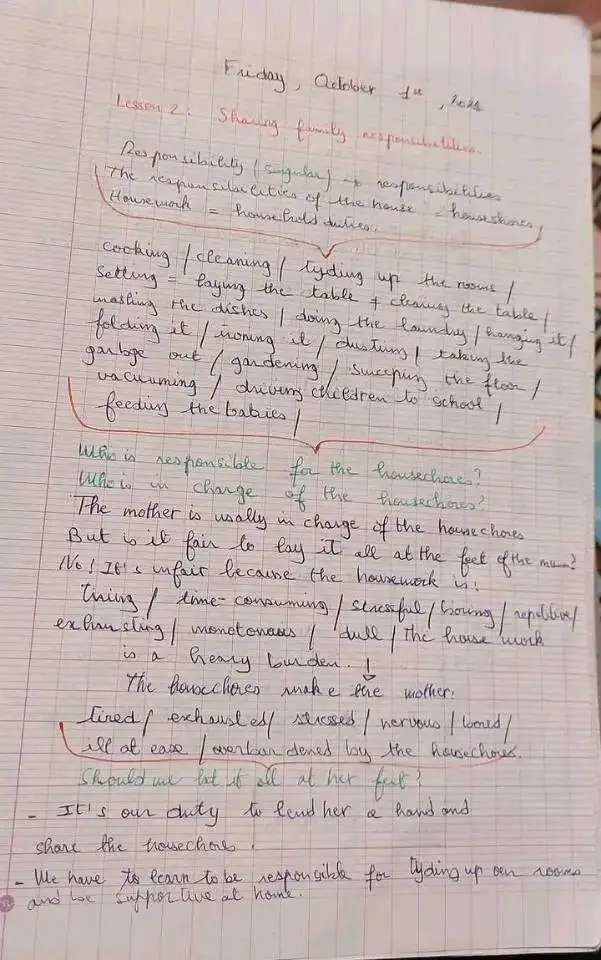 Friday, October 1st, 2021
Lesson 2: Sharing family responsibilities.
Responsibility (singular) → responsibilities
The responsibilities of the house = housechores,
Housework = household duties.
cooking / cleaning / tyding up the rooms /
setting = laying the table ≠ clearing the table /
washing the dishes / doing the laundry / hanging it /
folding it / ironing it / dusting / taking the
garbge out / gardening / sweeping the floor /
vacuuming / driving children to school /
feeding the babies /
Who is responsible for the housechores?
Who is in charge of the housechores?
The mother is usally in charge of the housechores
But is it fair to lay it all at the feet of the mum?
No! It's unfair because the housework is:
Tiring / time-consuming / stressful / boring / repititive /
exhausting / monotonous / dull / The house work
is a heavy burden. ↓
The housechores make the mother:
tired / exhausted / stressed / nervous / bored /
ill at ease / overburdened by the housechores.
Should we let it all at her feet?
- It's our duty to lend her a hand and
share the housechores.
- We have to learn to be responsible for tyding up our rooms
and be supportive at home.